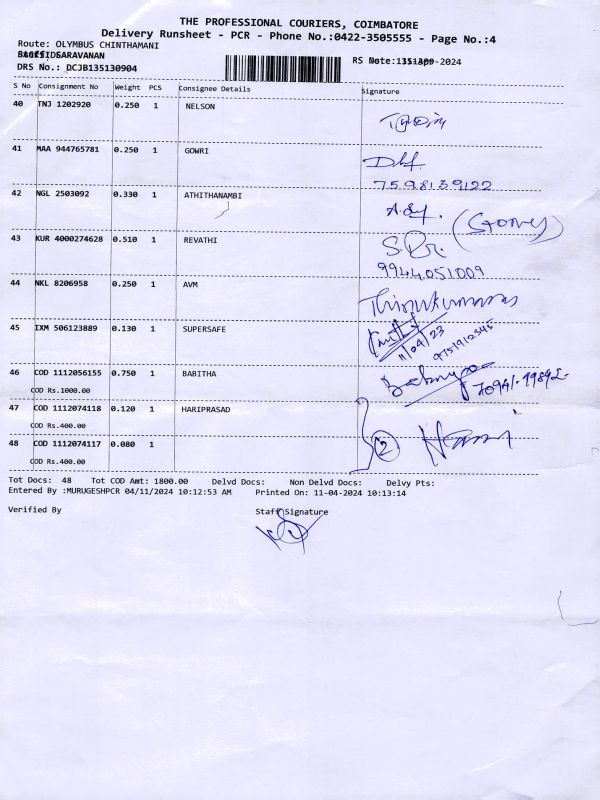 THE PROFESSIONAL COURIERS, COIMBATORE
Delivery Runsheet - PCR - Phone No.:0422-3505555 - Page No.:4
Route: OLYMBUS CHINTHAMANI
SARAVANAN
DRS No.: DCJB135130904
S No Consignment No Weight PCS Consignee Details Signature
40 TNJ 1202920 0.250 1 NELSON
41 MAA 944765781 0.250 1 GOWRI
7598139122
42 NGL 2503092 0.330 1 ATHITHANAMBI
43 KUR 4000274628 0.510 1 REVATHI
9944051009
44 NKL 8206958 0.250 1 AVM
Thirukumaran
45 IXM 506123889 0.130 1 SUPERSAFE
11/04/23
46 COD 1112056155 0.750 1 BABITHA
COD Rs.1000.00
47 COD 1112074118 0.120 1 HARIPRASAD
COD Rs.400.00
48 COD 1112074117 0.080 1
2
COD Rs.400.00
Tot Docs: 48 Tot COD Amt: 1800.00 Delvd Docs: Non Delvd Docs: Delvy Pts:
Entered By :MURUGESHPCR 04/11/2024 10:12:53 AM Printed On: 11-04-2024 10:13:14
Verified By Staff Signature